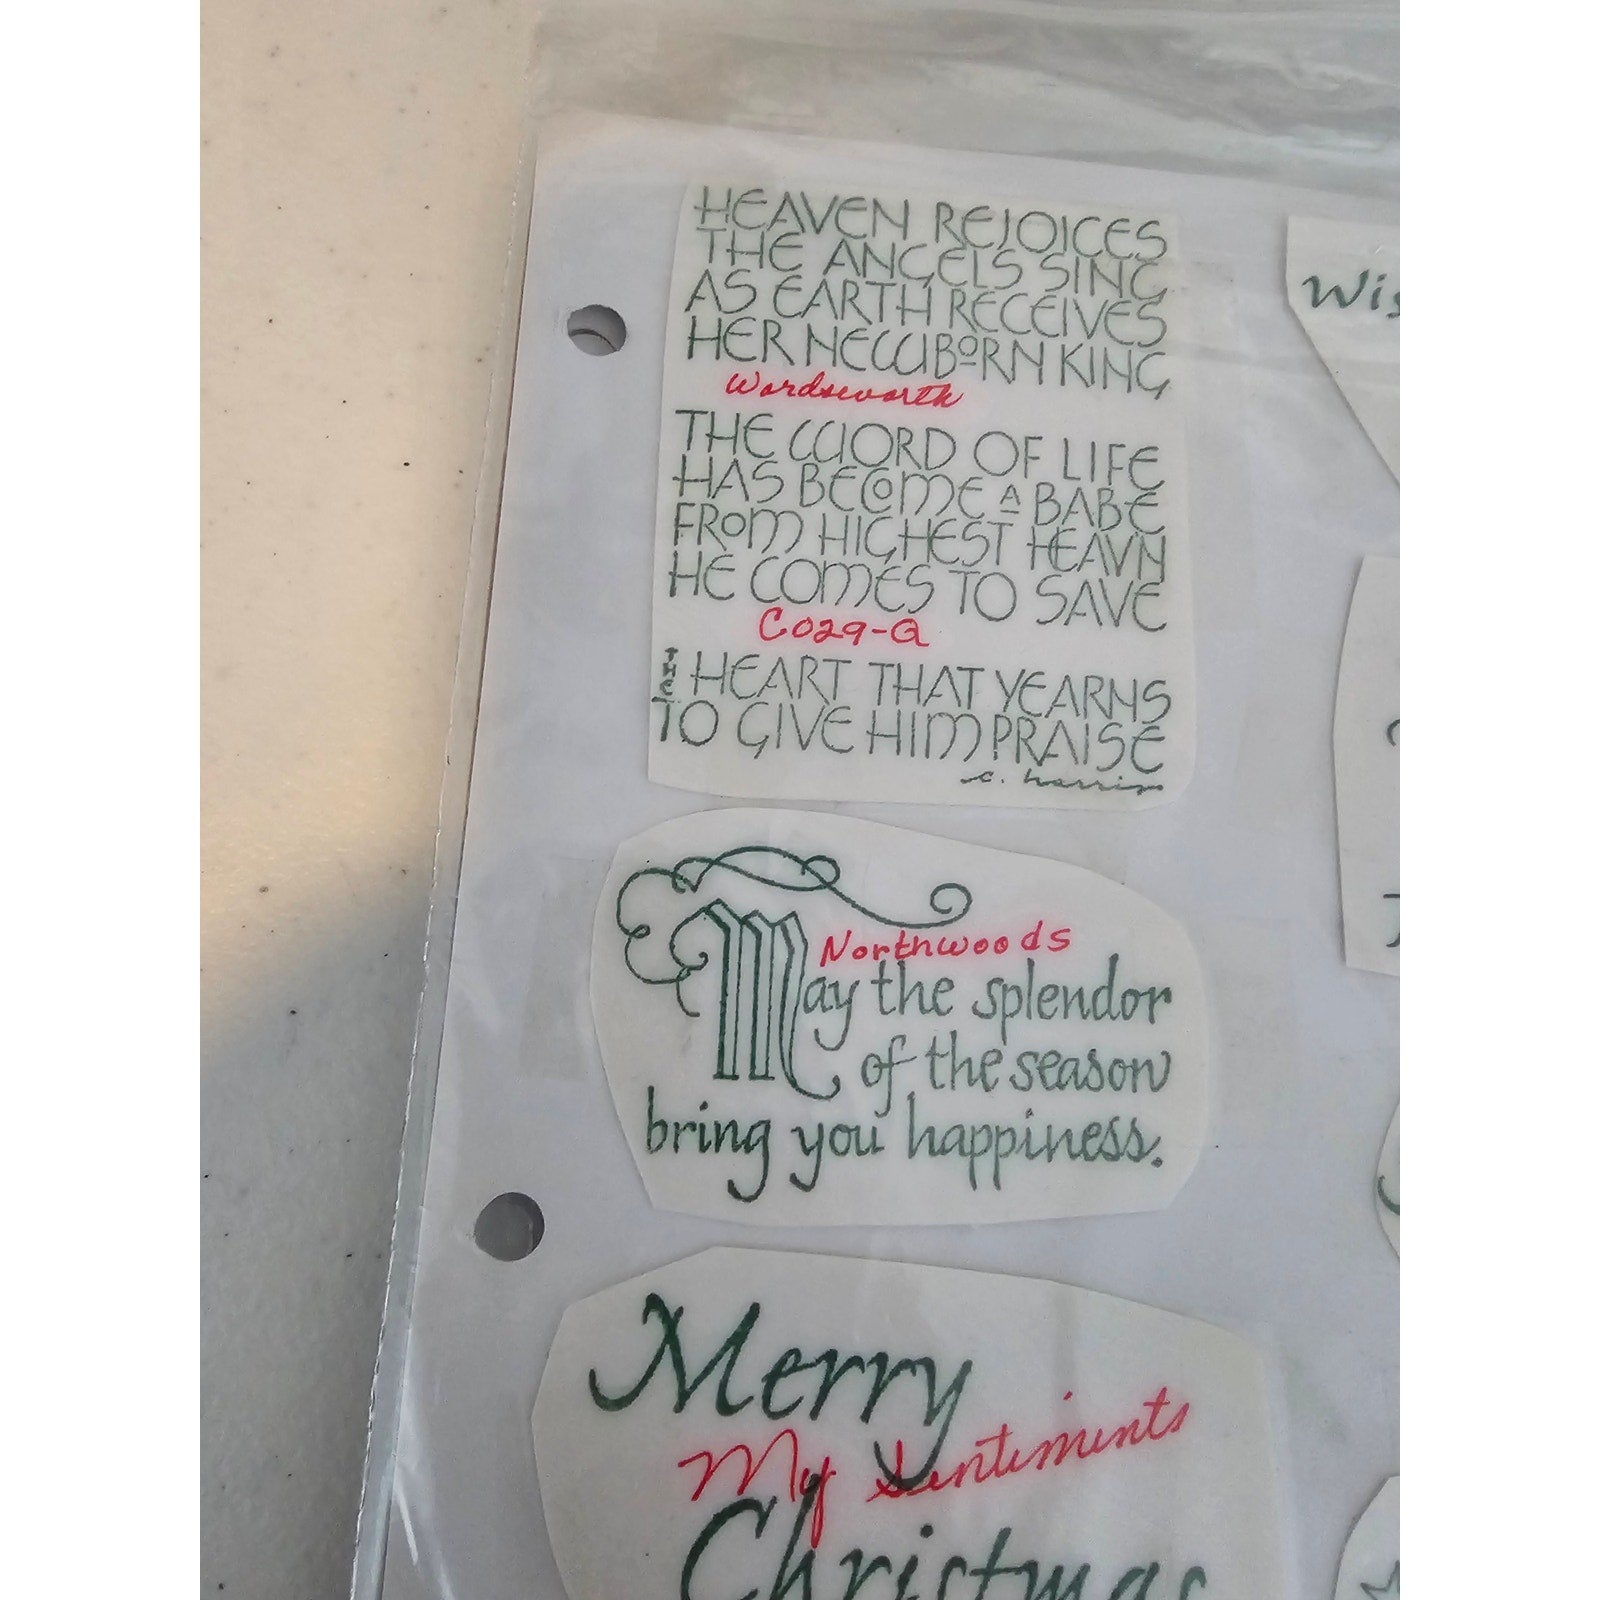 HEAVEN REJOICES
THE ANGELS SING
AS EARTH RECEIVES
HER NEWBORN KING
Wordsworth
THE WORD OF LIFE
HAS BECOME A BABE
FROM HIGHEST HEAVN
HE COMES TO SAVE
C029-G
HEART THAT YEARNS
TO GIVE HIM PRAISE
c. harris
Northwoods
May the splendor
of the season
bring you happiness.
Merry
My Sentiments
Christmas
Wis